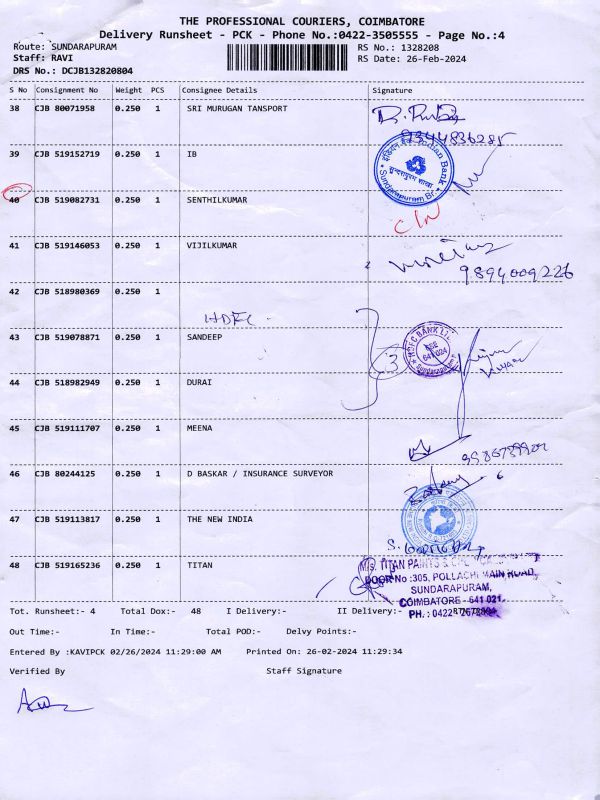 THE PROFESSIONAL COURIERS, COIMBATORE
Delivery Runsheet - PCK - Phone No.:0422-3505555 - Page No.:4
Route: SUNDARAPURAM RS No.: 1328208
Staff: RAVI RS Date: 26-Feb-2024
DRS No.: DCJB132820804
S No Consignment No Weight PCS Consignee Details Signature
38 CJB 80071958 0.250 1 SRI MURUGAN TANSPORT
9344836285
39 CJB 519152719 0.250 1 IB
Indian Bank
Sundarapuram Br.
40 CJB 519082731 0.250 1 SENTHILKUMAR
C/N
41 CJB 519146053 0.250 1 VIJILKUMAR
9894009226
42 CJB 518980369 0.250 1
HDFC
43 CJB 519078871 0.250 1 SANDEEP
HDFC BANK
641 024
3
44 CJB 518982949 0.250 1 DURAI
45 CJB 519111707 0.250 1 MEENA
46 CJB 80244125 0.250 1 D BASKAR / INSURANCE SURVEYOR
47 CJB 519113817 0.250 1 THE NEW INDIA
48 CJB 519165236 0.250 1 TITAN
M/s. TITAN PAINTS
DOOR No :305, POLLACHI MAIN ROAD,
SUNDARAPURAM,
COIMBATORE - 641 021.
PH. : 0422
Tot. Runsheet:- 4 Total Dox:- 48 I Delivery:- II Delivery:-
Out Time:- In Time:- Total POD:- Delvy Points:-
Entered By :KAVIPCK 02/26/2024 11:29:00 AM Printed On: 26-02-2024 11:29:34
Verified By Staff Signature